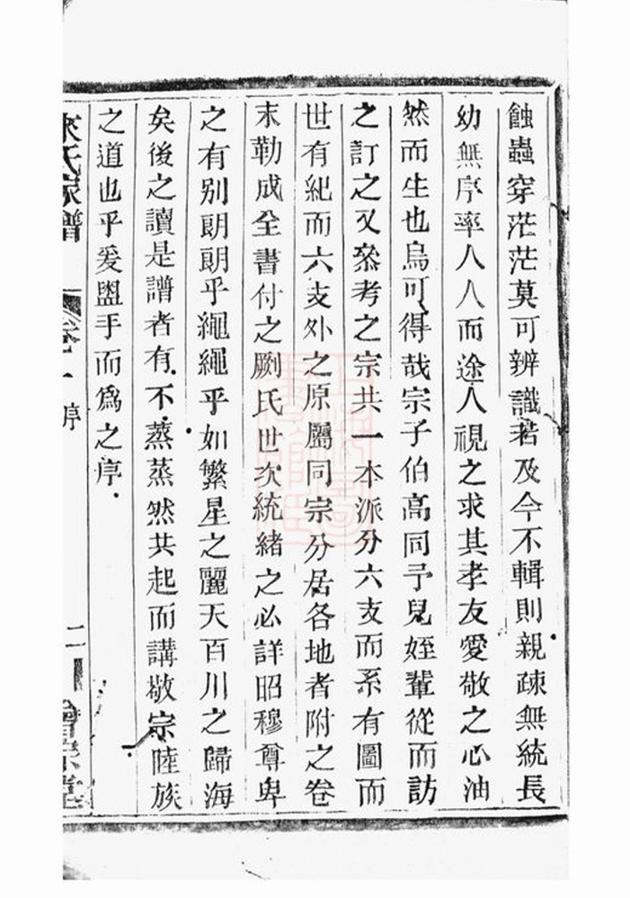 蝕蟲穿茫茫莫可辨識者及今不輯則親疎無統長
幼無序率人人而途人視之求其孝友愛敬之心油
然而生也烏可得哉宗子伯高同予兒姪輩從而訪
之訂之又叅考之宗共一本派分六支而系有圖而
世有紀而六支外之原屬同宗分居各地者附之卷
末勒成全書付之劂氏世次統緒之必詳昭穆尊卑
之有别朗朗乎繩繩乎如繁星之麗天百川之歸海
矣後之讀是譜者有不蒸蒸然共起而講敬宗陸族
之道也乎爰盥手而爲之序
氏家譜
卷一
序
二